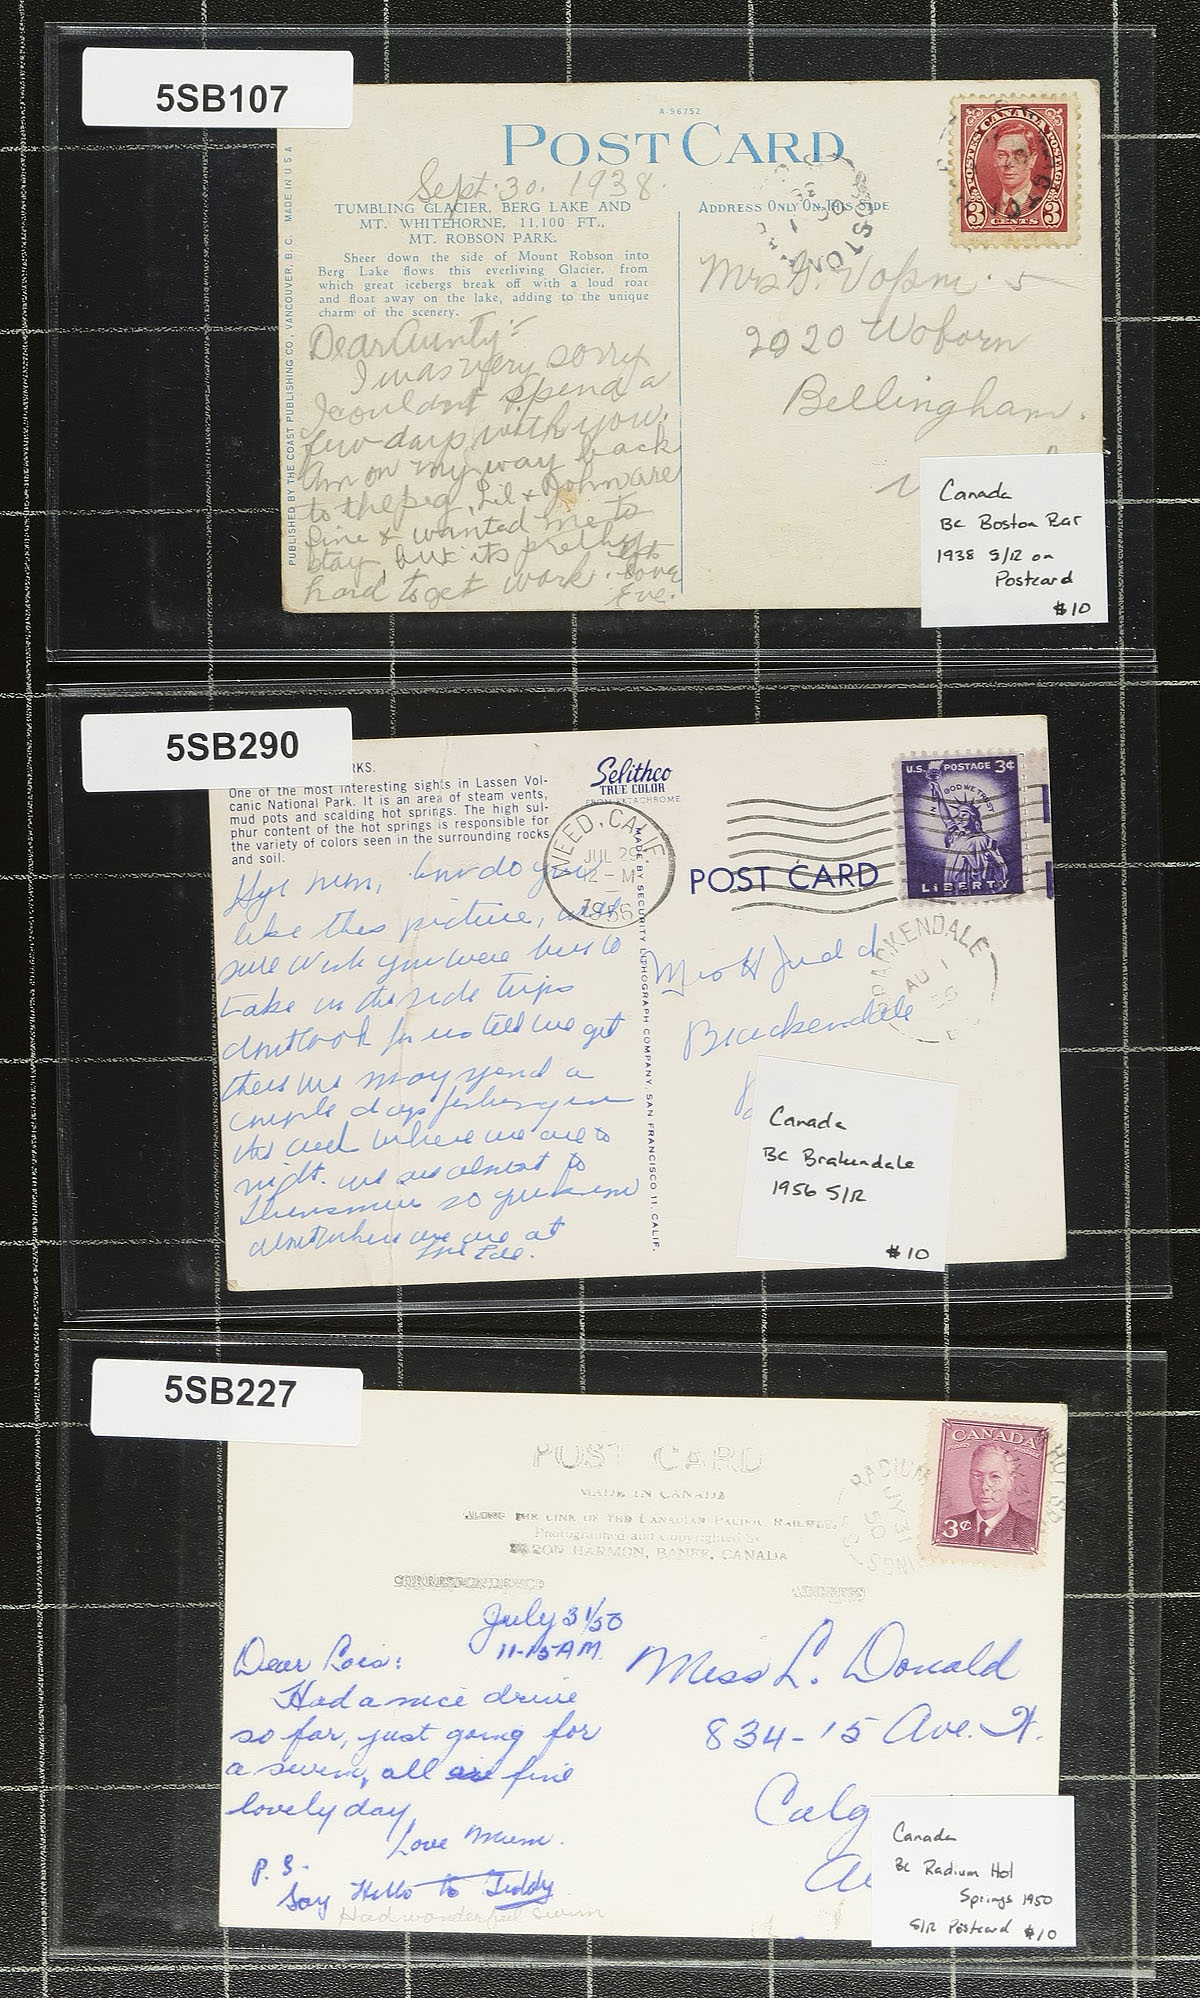 5SB107
A-96752
POST CARD
Sept. 30. 1938.
TUMBLING GLACIER, BERG LAKE AND
MT. WHITEHORNE, 11,100 FT.,
MT. ROBSON PARK.
Sheer down the side of Mount Robson into
Berg Lake flows this everliving Glacier, from
which great icebergs break off with a loud roar
and float away on the lake, adding to the unique
charm of the scenery.
ADDRESS ONLY ON THIS SIDE
PUBLISHED BY THE COAST PUBLISHING CO., VANCOUVER, B.C. MADE IN U S A
POSTES CANADA POSTAGE
3 CENTS 3
BOSTON
Dear Aunty:-
I was very sorry
I couldnt spend a
few days with you.
Am on my way back
to the peg, Lil & John are
fine & wanted me to
stay but its pretty
hard to get work.
love
Eve.
Mrs G.
2020 Woborn
Bellingham.
Canada
BC Boston Bar
1938 S/R on
Postcard
$10
5SB290
RKS.
One of the most interesting sights in Lassen Vol-
canic National Park. It is an area of steam vents,
mud pots and scalding hot springs. The high sul-
phur content of the hot springs is responsible for
the variety of colors seen in the surrounding rocks
and soil.
Selithco
TRUE COLOR
FROM EKTACHROME
WEED, CALIF.
JUL 29
12 - M
1956
POST CARD
U.S. POSTAGE 3¢
IN GOD WE TRUST
LIBERTY
MADE BY SECURITY LITHOGRAPH COMPANY, SAN FRANCISCO 11, CALIF.
BRACKENDALE
AU 1
56
how do you
like this picture, with
sure wish you were here to
take in the side trips
dont look for us till we get
there we may spend a
couple days fishing
where we are to
night. we are almost to
so you know
about where we are at
Mrs H Judd
Brackendale
Canada
BC Brakendale
1956 S/R
$10
5SB227
POST CARD
MADE IN CANADA
ALONG THE LINE OF THE CANADIAN PACIFIC RAILWAY.
Photographed and Copyrighted by
BYRON HARMON, BANFF, CANADA
CORRESPONDENCE
ADDRESS
RADIUM HOT SPRINGS
JY 31
50
CANADA
3¢
July 31/50
11-15 AM.
Dear Lois:
Had a nice drive
so far, just going for
a swim, all are fine
lovely day
Love Mum.
P.S.
Say Hello to Teddy
Had wonderful swim
Miss L. Donald
834-15 Ave. W.
Calg
Al
Canada
BC Radium Hot
Springs 1950
S/R Postcard $10